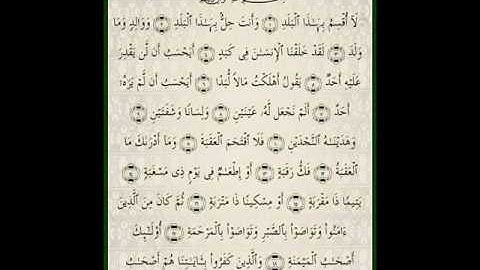 لَآ أُقْسِمُ بِهَـٰذَا ٱلْبَلَدِ ١ وَأَنتَ حِلٌّۢ بِهَـٰذَا ٱلْبَلَدِ ٢ وَوَالِدٍ وَمَا
وَلَدَ ٣ لَقَدْ خَلَقْنَا ٱلْإِنسَـٰنَ فِى كَبَدٍ ٤ أَيَحْسَبُ أَن لَّن يَقْدِرَ
عَلَيْهِ أَحَدٌ ٥ يَقُولُ أَهْلَكْتُ مَالًا لُّبَدًا ٦ أَيَحْسَبُ أَن لَّمْ يَرَهُۥٓ
أَحَدٌ ٧ أَلَمْ نَجْعَل لَّهُۥ عَيْنَيْنِ ٨ وَلِسَانًا وَشَفَتَيْنِ ٩
وَهَدَيْنَـٰهُ ٱلنَّجْدَيْنِ ١٠ فَلَا ٱقْتَحَمَ ٱلْعَقَبَةَ ١١ وَمَآ أَدْرَىٰكَ مَا
ٱلْعَقَبَةُ ١٢ فَكُّ رَقَبَةٍ ١٣ أَوْ إِطْعَـٰمٌ فِى يَوْمٍ ذِى مَسْغَبَةٍ ١٤
يَتِيمًا ذَا مَقْرَبَةٍ ١٥ أَوْ مِسْكِينًا ذَا مَتْرَبَةٍ ١٦ ثُمَّ كَانَ مِنَ ٱلَّذِينَ
ءَامَنُوا۟ وَتَوَاصَوْا۟ بِٱلصَّبْرِ وَتَوَاصَوْا۟ بِٱلْمَرْحَمَةِ ١٧ أُو۟لَـٰٓئِكَ
أَصْحَـٰبُ ٱلْمَيْمَنَةِ ١٨ وَٱلَّذِينَ كَفَرُوا۟ بِـَٔايَـٰتِنَا هُمْ أَصْحَـٰبُ